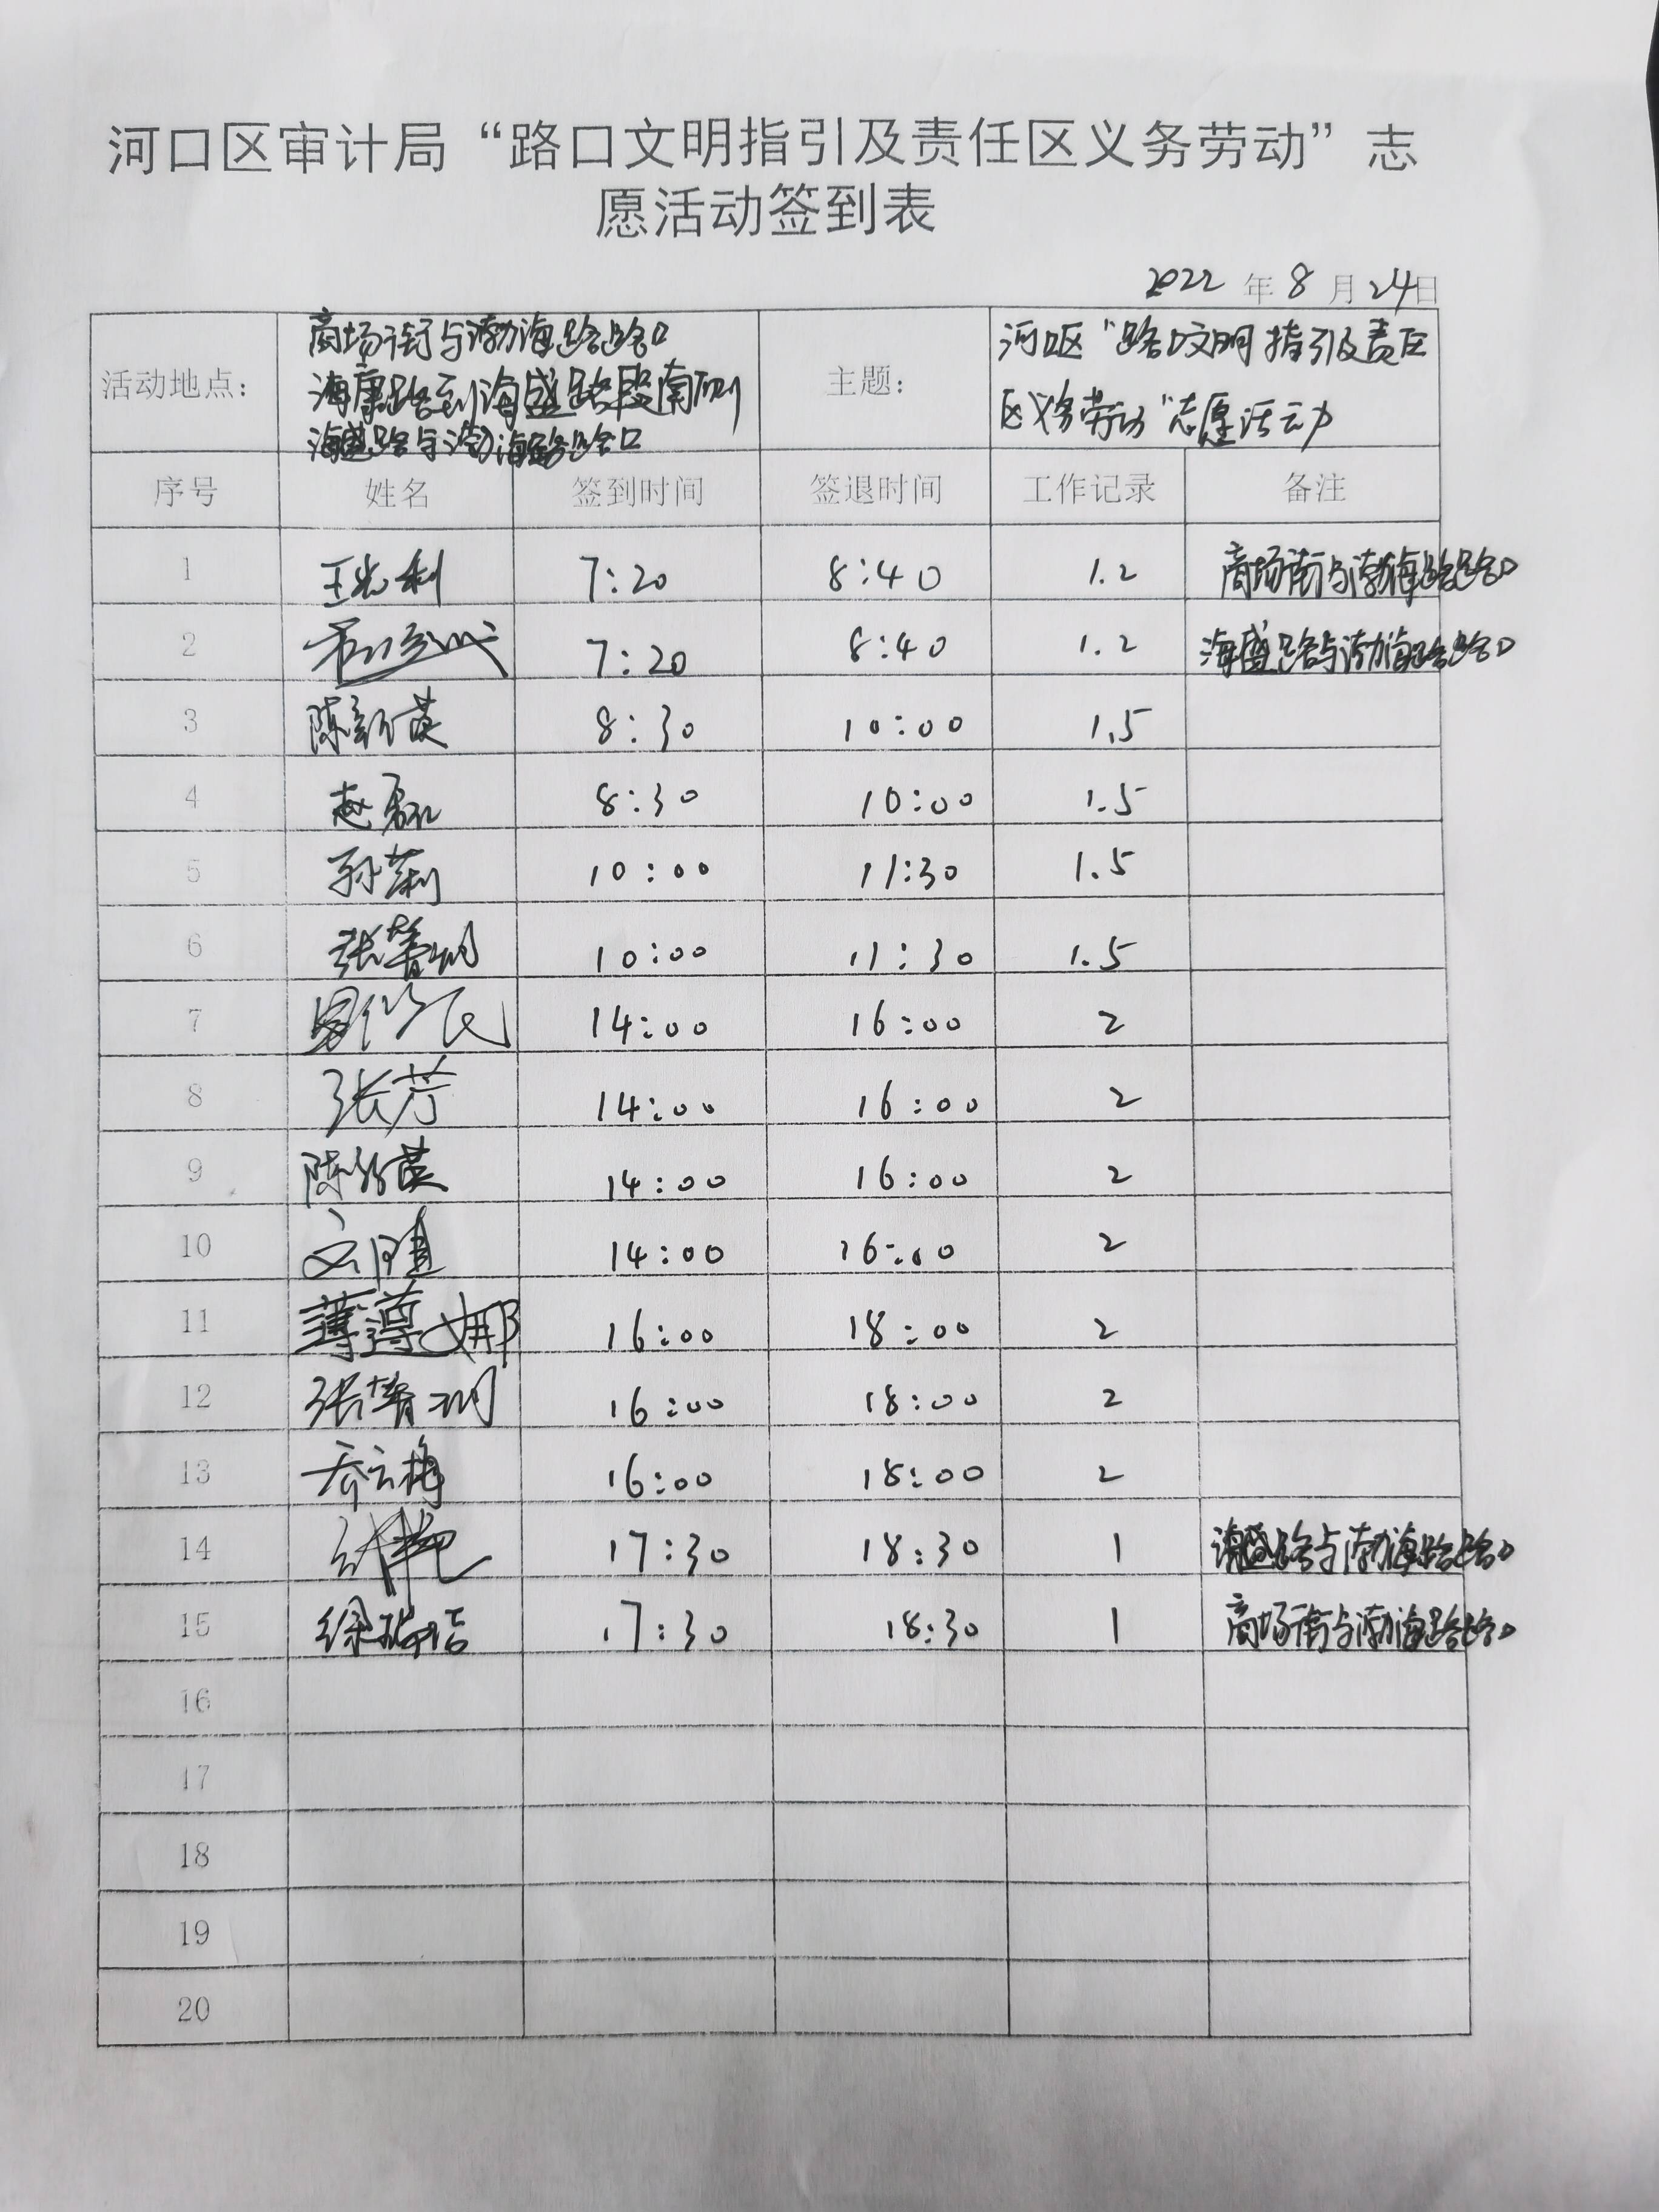 河口区审计局“路口文明指引及责任区义务劳动”志
愿活动签到表
2022 年 8 月 24日
活动地点： 商场街与渤海路路口 主题： 河口区“路口文明指引及责任
海康路到海盛路段南侧 区义务劳动”志愿活动
海盛路与渤海路路口
序号 姓名 签到时间 签退时间 工作记录 备注
1 王光利 7:20 8:40 1.2 商场街与渤海路路口
2 7:20 8:40 1.2 海盛路与渤海路路口
3 陈新英 8:30 10:00 1.5
4 赵 8:30 10:00 1.5
5 孙莉 10:00 11:30 1.5
6 张 10:00 11:30 1.5
7 14:00 16:00 2
8 张芳 14:00 16:00 2
9 陈 英 14:00 16:00 2
10 14:00 16:00 2
11 娜 16:00 18:00 2
12 张 16:00 18:00 2
13 乔云梅 16:00 18:00 2
14 17:30 18:30 1 海盛路与渤海路路口
15 徐 17:30 18:30 1 商场街与渤海路路口
16
17
18
19
20